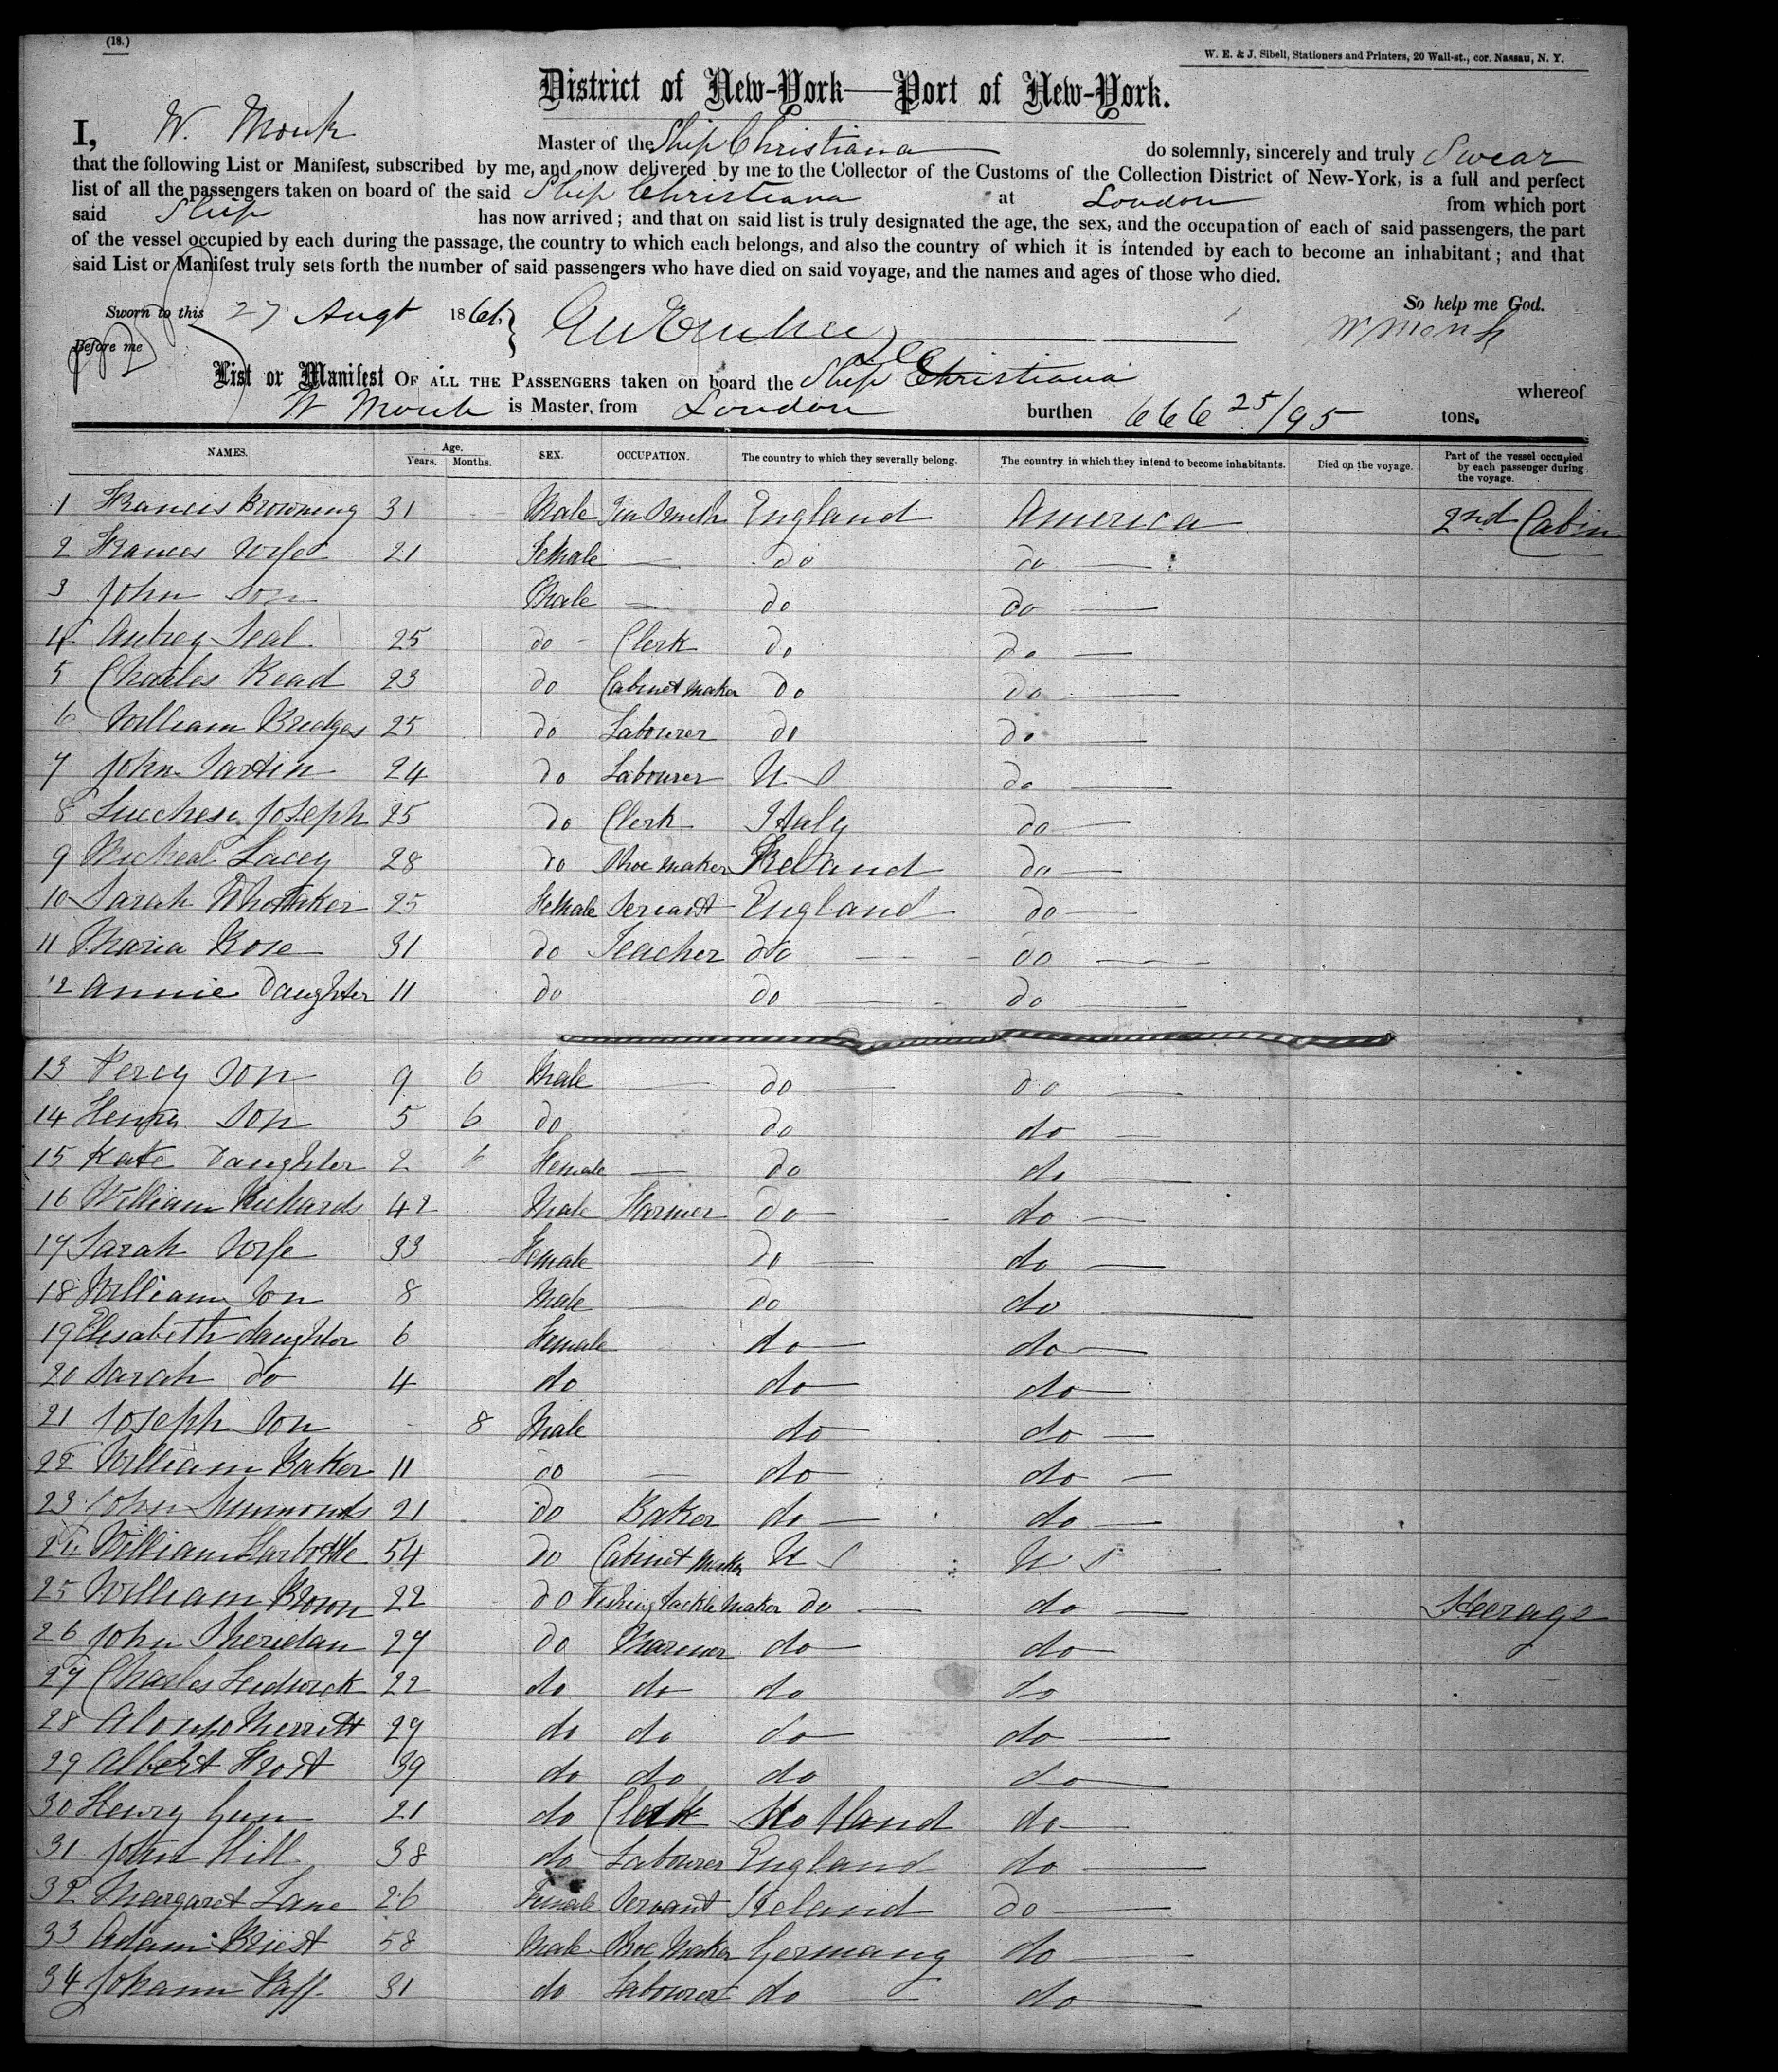 (18.)
W. E. & J. Sibell, Stationers and Printers, 20 Wall-st., cor. Nassau, N. Y.
District of New-York—Port of New-York.
I, W. Monk Master of the Ship Christiana do solemnly, sincerely and truly Swear
that the following List or Manifest, subscribed by me, and now delivered by me to the Collector of the Customs of the Collection District of New-York, is a full and perfect
list of all the passengers taken on board of the said Ship Christiana at London from which port
said Ship has now arrived; and that on said list is truly designated the age, the sex, and the occupation of each of said passengers, the part
of the vessel occupied by each during the passage, the country to which each belongs, and also the country of which it is intended by each to become an inhabitant; and that
said List or Manifest truly sets forth the number of said passengers who have died on said voyage, and the names and ages of those who died.
So help me God.
Sworn to this 27 Augt 1866
W Monk
Before me
List or Manifest OF ALL THE PASSENGERS taken on board the Ship Christiana whereof
W Monk is Master, from London burthen 666 25/95 tons.
NAMES. Age. Years. Months. SEX. OCCUPATION. The country to which they severally belong. The country in which they intend to become inhabitants. Died on the voyage. Part of the vessel occupied by each passenger during the voyage.
1 Francis Browning 31 Male Tin Smith England America 2nd Cabin
2 Frances Wife 21 Female — do do
3 John Son Male — do do
4 Aubrey Seal 25 do Clerk do do
5 Charles Read 23 do Cabinet Maker do do
6 William Bridges 25 do Labourer do do
7 John 24 do Labourer U S do
8 Lucchesi Joseph 25 do Clerk Italy do
9 Micheal Lacey 28 do Shoe Maker Ireland do
10 Sarah Whottaker 25 Female Servant England do
11 Maria Rose 31 do Teacher do do
12 Annie Daughter 11 do do do
13 Percy Son 9 6 Male — do do
14 Henry Son 5 6 do do do
15 Kate Daughter 2 6 Female — do do
16 William Richards 42 Male Farmer do do
17 Sarah Wife 33 Female do do
18 William Son 8 Male — do do
19 Elisabeth daughter 6 Female do do
20 Sarah do 4 do do do
21 Joseph Son 8 Male do do
22 William Baker 11 do — do do
23 John Simmonds 21 do Baker do do
24 William Harbottle 54 do Cabinet Maker U S U S
25 William Brown 22 do Fishing Tackle Maker do do Steerage
26 John Sheridan 27 do Mariner do do
27 Charles Ledwick 22 do do do do
28 Alonzo Merritt 29 do do do do
29 Albert Frost 39 do do do do
30 Henry Gun 21 do Clerk Scotland do
31 John Hill 38 do Labourer England do
32 Margaret Lane 26 Female Servant Ireland do
33 Adam Briest 58 Male Shoe Maker Germany do
34 Johann Paff 31 do Labourer do do